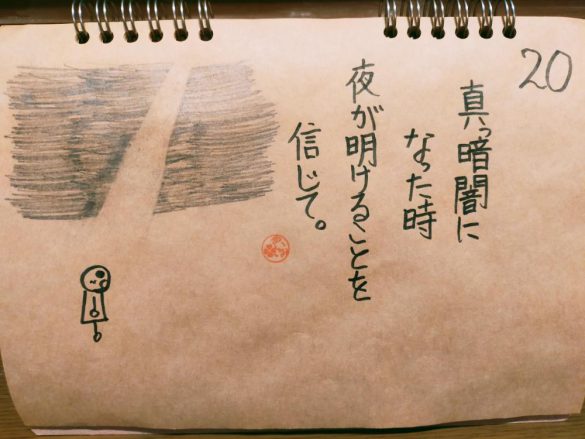 20
真っ暗闇に
なった時
夜が明けることを
信じて。